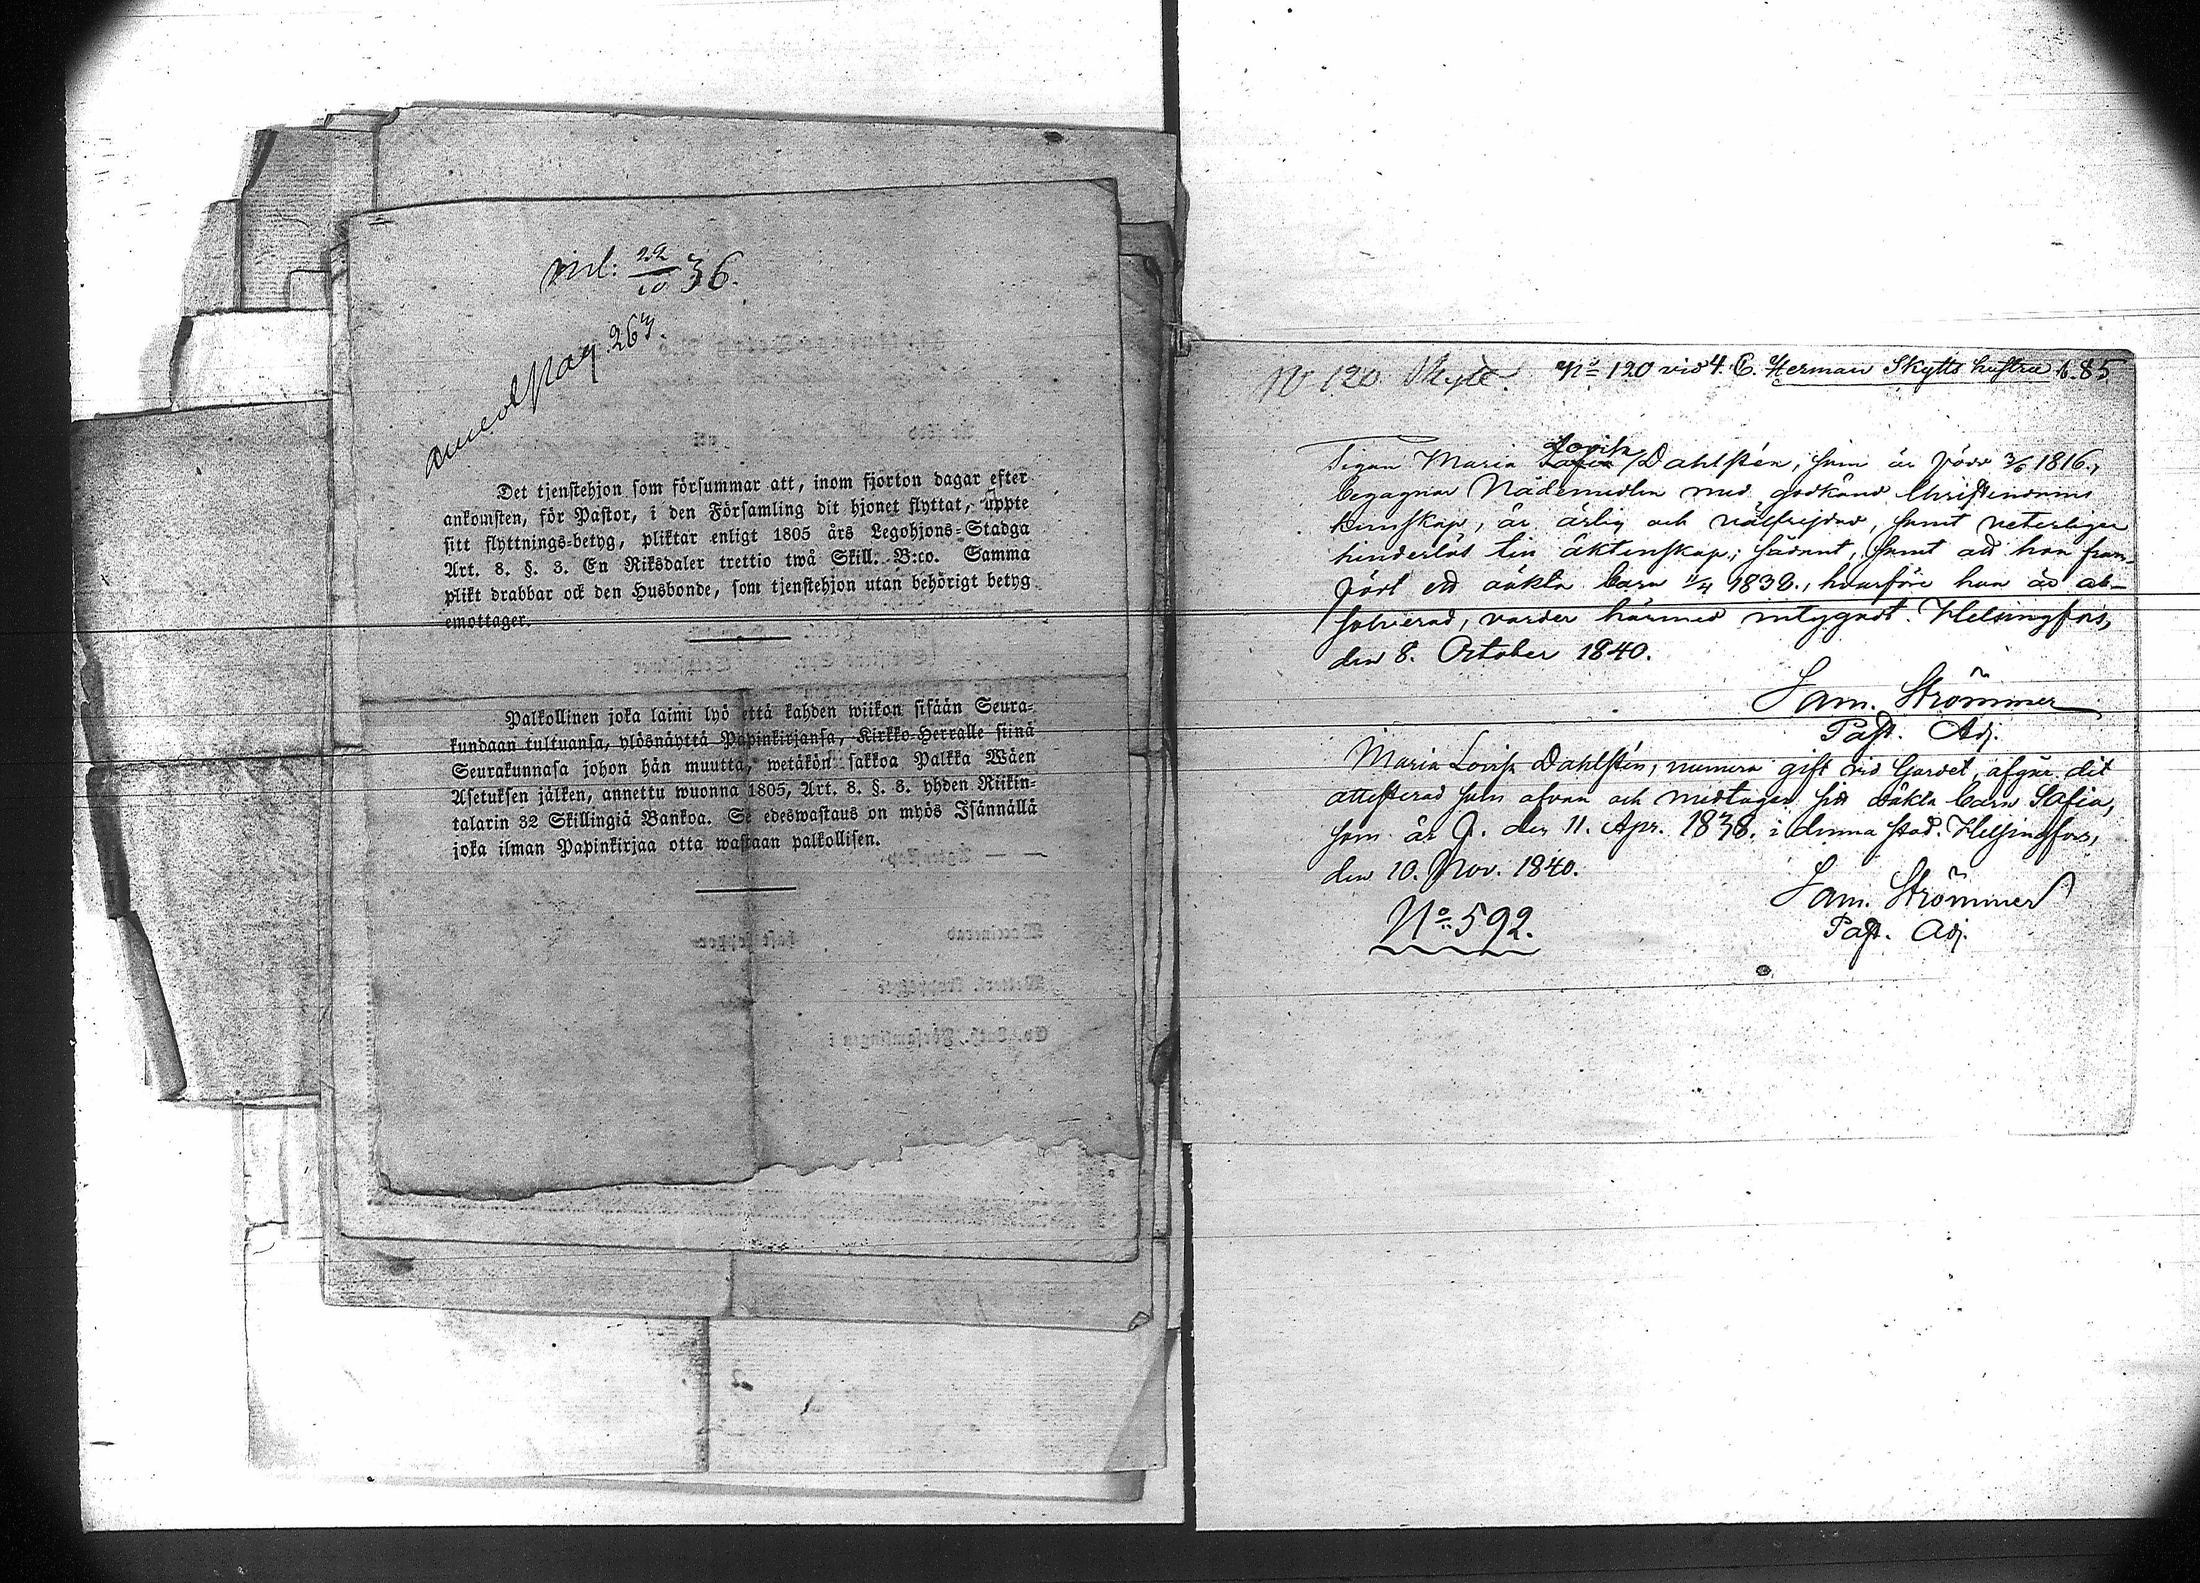 inl: 22/10 36.
pag. 263
Det tjenstehjon som försummar att, inom fjorton dagar efter
ankomsten, för Pastor, i den Församling dit hjonet flyttat, uppte
sitt flyttnings-betyg, pliktar enligt 1805 års Legohjons-Stadga
Art. 8. §. 3. En Riksdaler trettio twå Skill. B:co. Samma
plikt drabbar ock den Husbonde, som tjenstehjon utan behörigt betyg
emottager.
Palkollinen joka laimi lyö että kahden wiikon sisään Seura-
kundaan tultuansa, ylösnäyttä Papinkirjansa, Kirkko-Herralle siinä
Seurakunnasa johon hän muutta, wetäkön sakkoa Palkka Wäen
Asetuksen jälken, annettu wuonna 1805, Art. 8. §. 3. yhden Riikin-
talarin 32 Skillingiä Bankoa. Se edeswastaus on myös Isännällä
joka ilman Papinkirjaa otta wastaan palkollisen.
No 120 Skytt. No 120 vid 4. C. Herman Skytts hustru 85
Pigan Maria Lovisa Dahlstén, som är född 3/6 1816.,
begagnar Nådemedlen med godkänd Christendoms
kunskap, är ärlig och välfrejdad, samt veterligen
hinderlös till äktenskap; sådant, samt att hon fram-
född ett oäkta barn 11/4 1838., hvarföre hon är ab-
solverad, varder härmed intygadt. Helsingfors,
den 8. October 1840.
Sam. Strömmer
Past. Adj.
Maria Lovisa Dahlstén, numera gift vid Gardet, afgår dit
attesterad som ofvan och medtager sitt oäkta barn Sofia,
som är f. den 11. Apr. 1838. i denna stad. Helsingfors,
den 10. Nov. 1840.
Sam. Strömmer
Past. Adj.
No. 592.